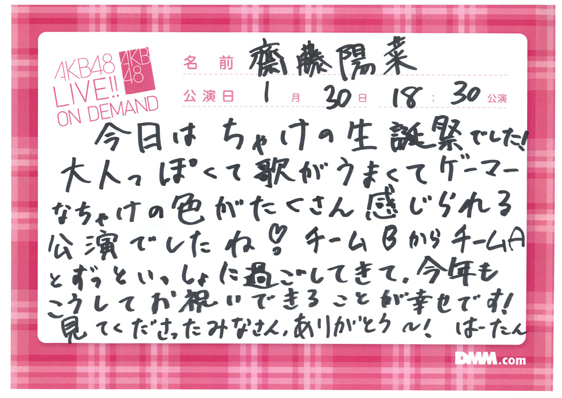 AKB48
LIVE!!
ON DEMAND
AKB
48
名前 齋藤陽菜
公演日 1月30日 18:30公演
今日はちゃけの生誕祭でした!
大人っぽくて歌がうまくてゲーマー
なちゃけの色がたくさん感じられる
公演でしたね♡ チームBからチームA
とずっといっしょに過ごしてきて、今年も
こうしてお祝いできることが幸せです!
見てくださったみなさん、ありがとう〜! はーたん
DMM.com